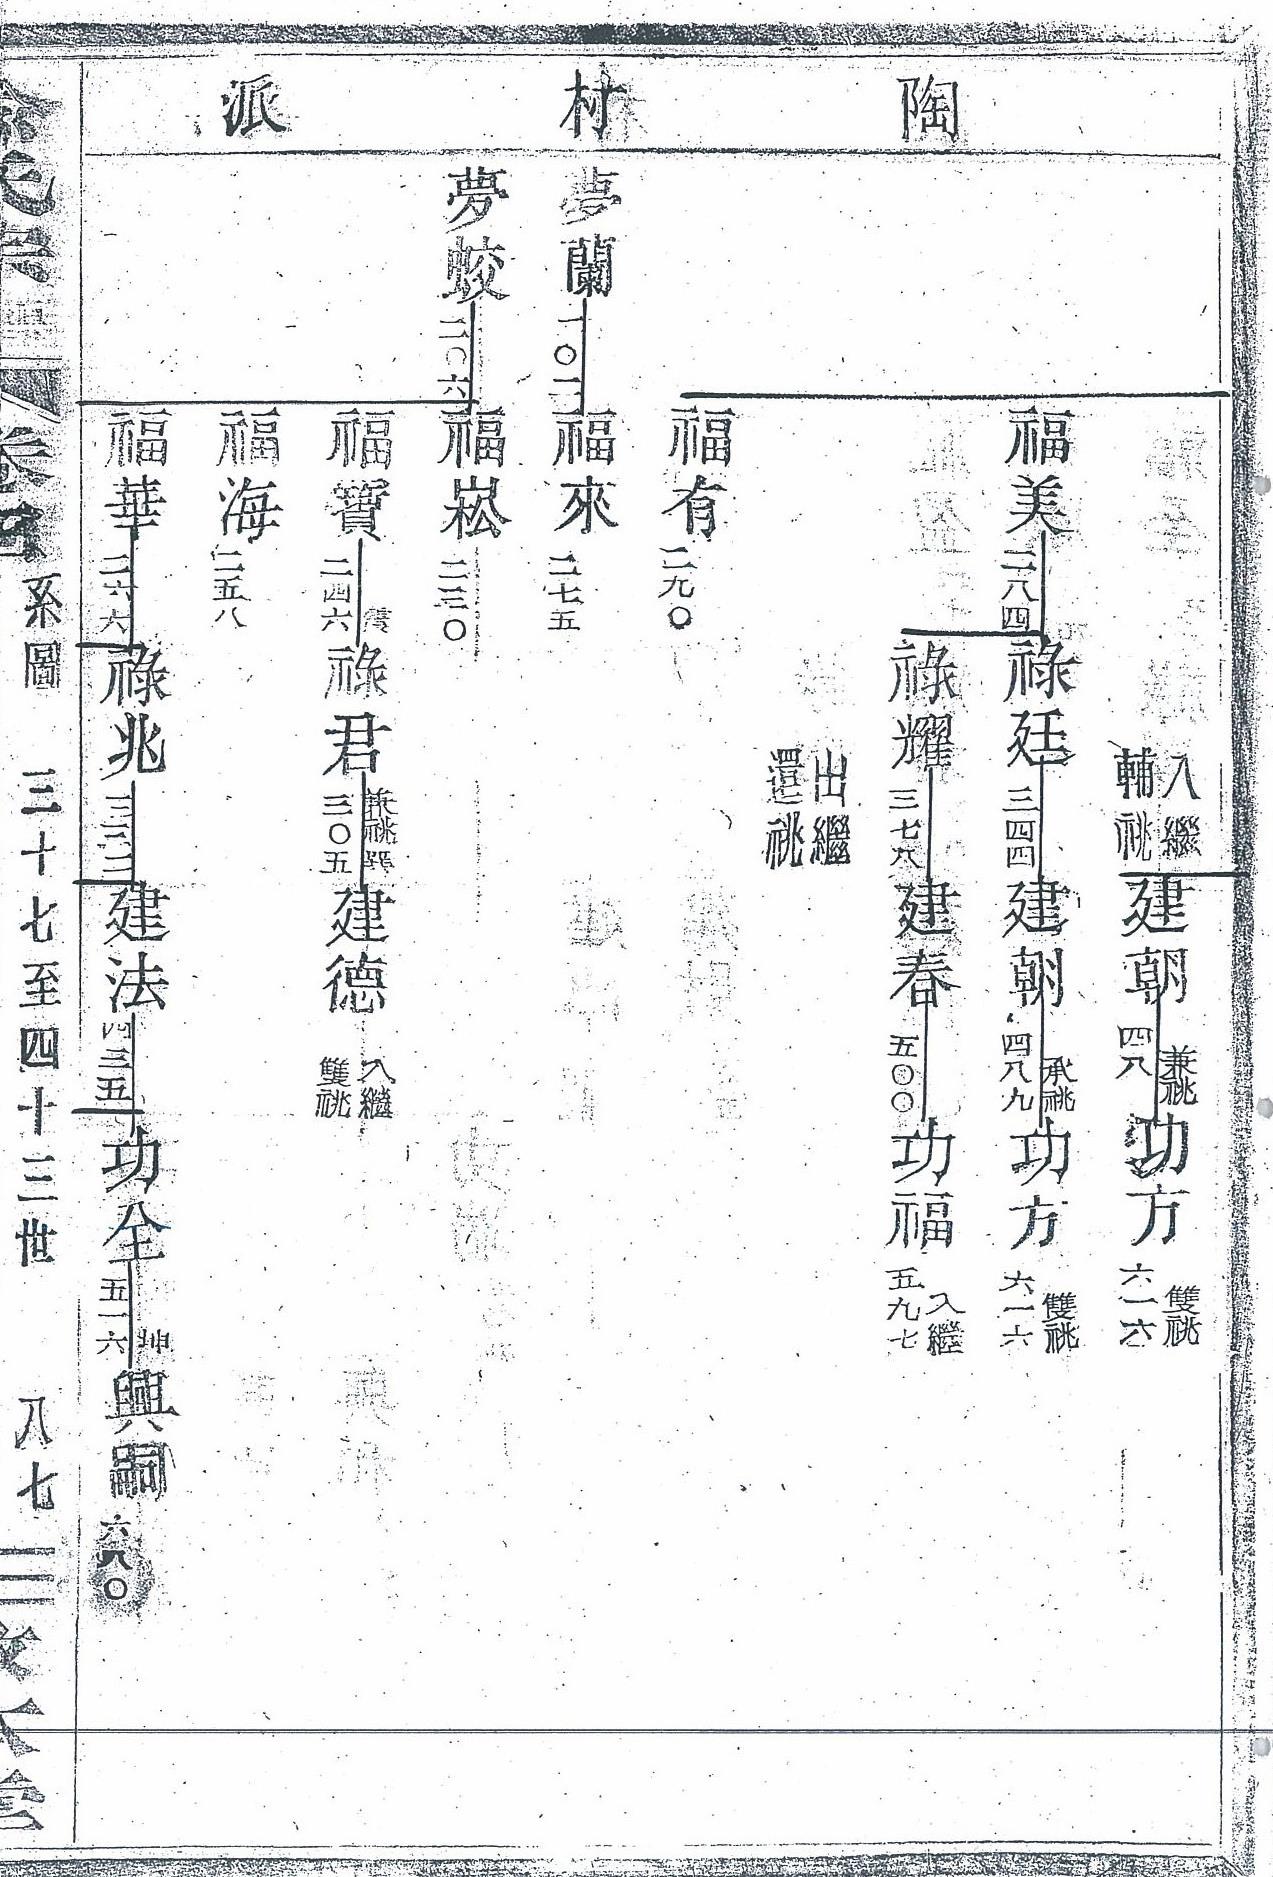 陶村派
入繼
輔祧
建朝
四八
兼祧
功方
六一六
雙祧
福美
二八四
祿廷
三四四
建朝
四八九
承祧
功方
六一六
雙祧
祿耀
三七八
建春
五〇〇
功福
五九七
入繼
出繼
還祧
福有
二九〇
夢蘭
一〇二
福來
二七五
夢蛟
二〇六
福崧
二三〇
福寶
二四六
祿君
三〇五
兼祧
建德
入繼
雙祧
福海
二五八
福華
二六六
祿兆
三三二
建法
四三五
功全
五一六
坤
興嗣
六八〇
系圖
三十七至四十三世
八七